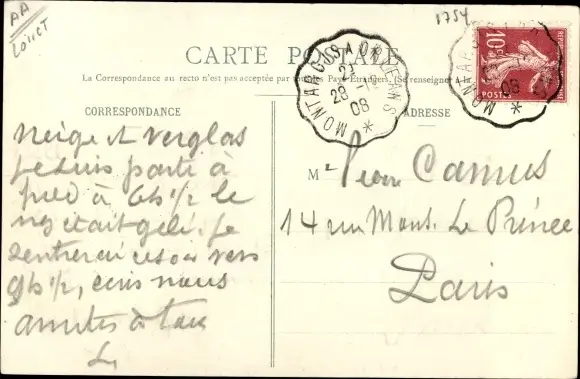 AA
Loiret
1754
CARTE POSTALE
La Correspondance au recto n'est pas acceptée par tous les Pays Etrangers. (Se renseigner à la
MONTARGIS A ORLEANS
2°
28 -12
08
10c
POSTES
MONTARGIS
08
CORRESPONDANCE
ADRESSE
Neige et verglas
je suis parti à
pied à 6h 1/2 le
nez était gelé. Je
rentrerai ce soir vers
9h 1/2,
amitiés à tous
L.
Mr Pierre Camus
14 rue Mons. Le Prince
Paris